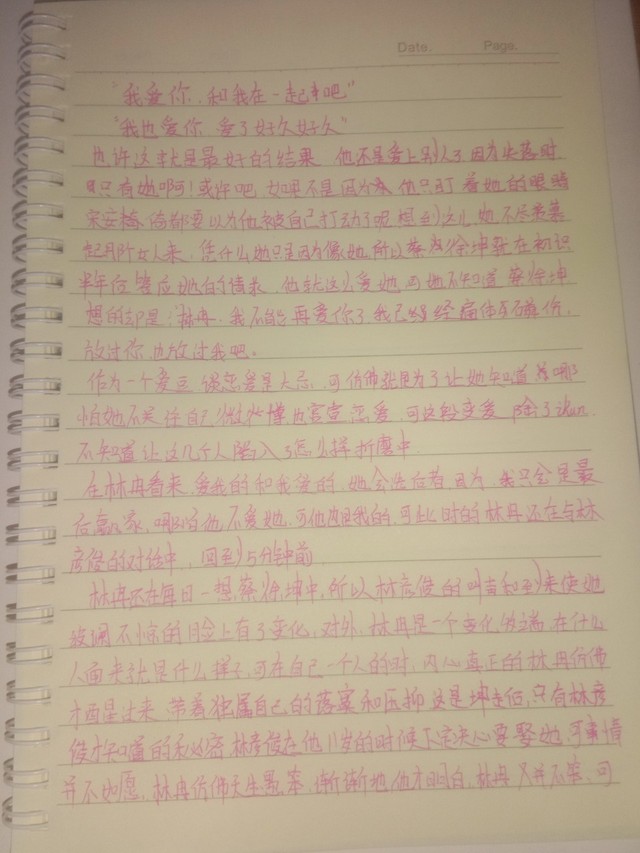 Date.        Page.
"我爱你,和我在一起吧"
"我也爱你 爱了好久好久"
也许这就是最好的结果 他还是爱上别人了,因为失落时
只有她啊!或许吧,如果不是因为 他只盯着她的眼睛
都要以为他被自己打动了呢 想到这儿,她不尽羡慕
起那个女人来,凭什么她只是因为像她,所以蔡徐坤就在初识
半年后答应她的请求,他就这么爱她,可她不知道 蔡徐坤
想的却是:林冉,我不能再爱你了,我已经遍体 伤,
放过你,也放过我吧。
作为一个爱豆 谈恋爱是大忌,可仿佛就是为了让她知道 哪
怕她不关注自己微博也官宣恋爱,可这段恋爱 除了
不知道让这几个人陷入了怎么样折磨中
在林冉看来,爱我的和我爱的,她会选后者 因为,我只会是最
后赢家,哪怕他不爱她,可他 我的,可此时的林冉还在与林
彦俊的对话中,回到5分钟前
林冉还在每日一想蔡徐坤中,所以林彦俊的叫声和到来使她
波澜不惊的脸上有了变化,对外,林冉是一个变化 端,在什么
人面前就是什么样子,可在自己一个人的时,内心真正的林冉仿佛
才醒过来 带着独属自己的落寞和压抑 这是 ,只有林彦
俊才知道的秘密,林彦俊在他11岁的时候下定决心要娶她,可事情
并不如愿,林冉仿佛天生 ,渐渐地他才明白,林冉又并不笨,可